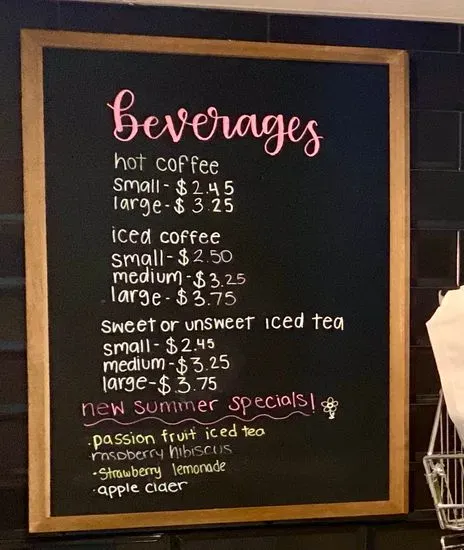 beverages
hot coffee
small - $2.45
large - $3.25
iced coffee
small - $2.50
medium - $3.25
large - $3.75
sweet or unsweet iced tea
small - $2.45
medium - $3.25
large - $3.75
new summer specials!
· passion fruit iced tea
raspberry hibiscus
· strawberry lemonade
· apple cider